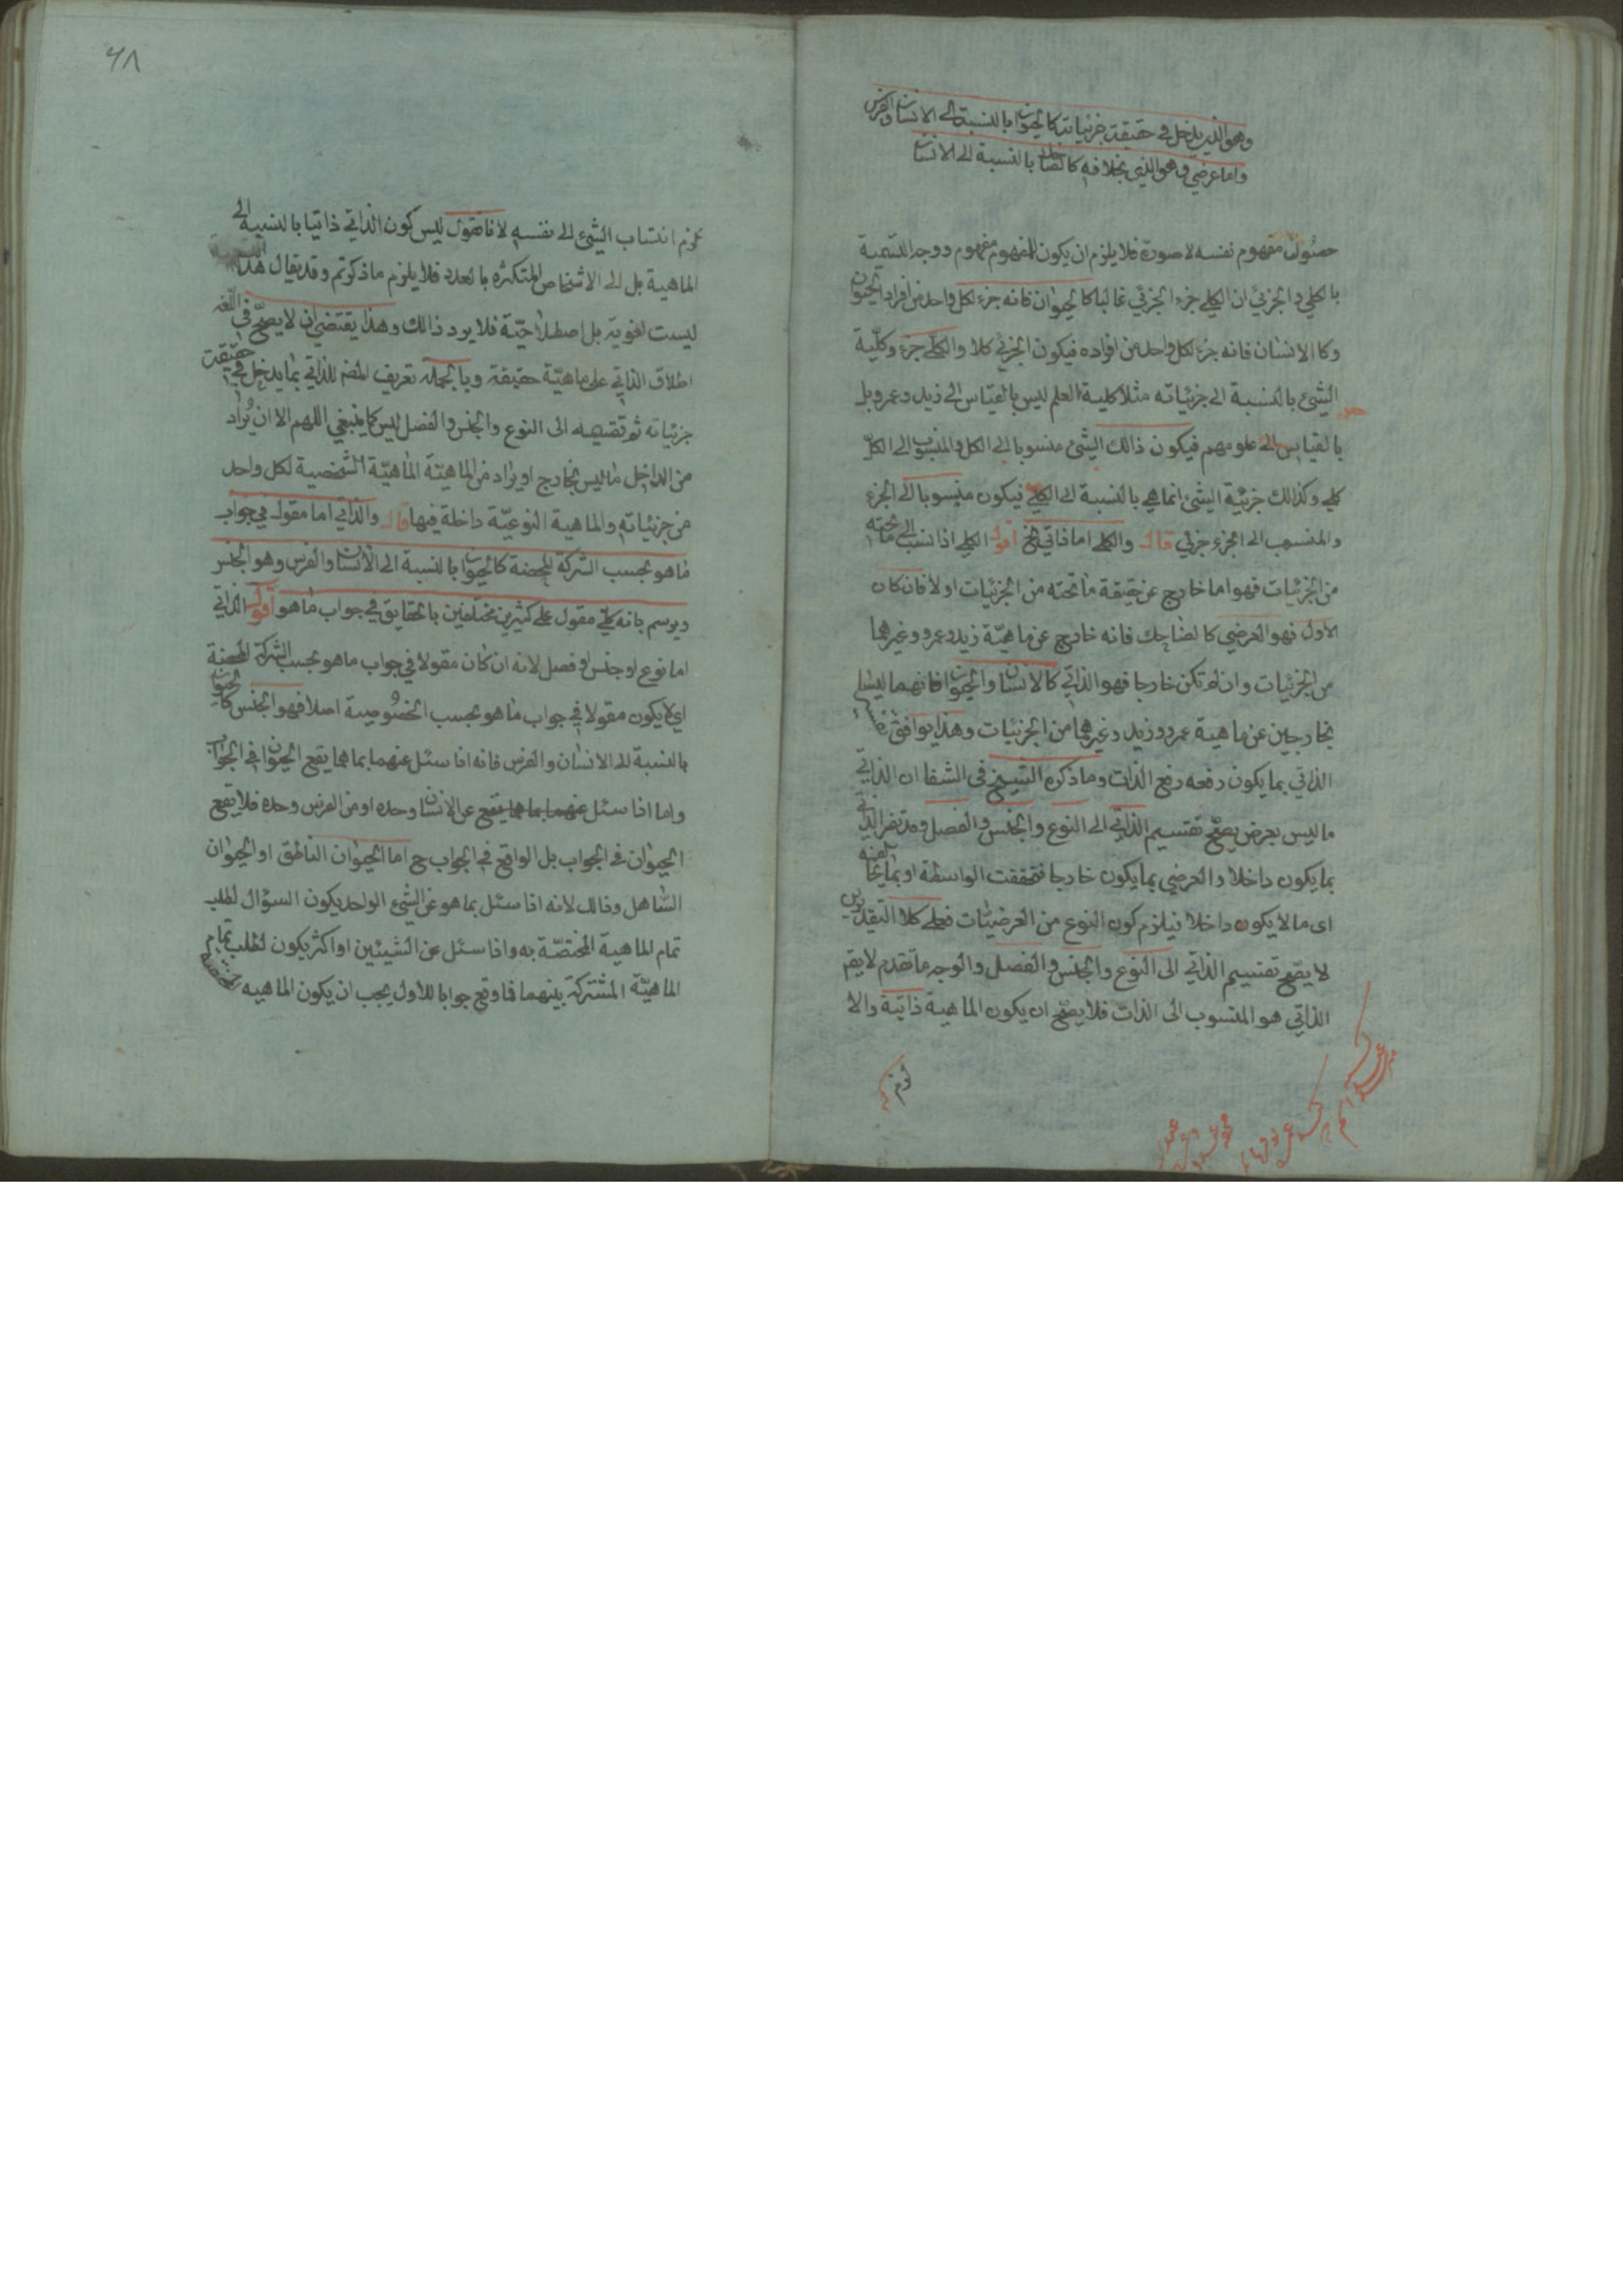 وهو الذي يدخل في حقيقة جزئياته كالحيوان بالنسبة الى الانسان والفرس
واما عرضي وهو الذي بخلافه كالضاحك بالنسبة الى الانسان
حصول مفهوم نفسه لا صورة فلا يلزم ان يكون للمفهوم مفهوم ووجه التسمية
بالكلي والجزئي ان الكلي جزء الجزئي غالبا كالحيوان فانه جزء لكل واحد من افراد الحيوان
وكالانسان فانه جزء لكل واحد من افراده فيكون الجزئي كلا والكلي جزء وكلية
الشيئ بالنسبة الى جزئياته مثلا كلية العلم ليس بالقياس الى زيد وعمرو بل
بالقياس الى علومهم فيكون ذالك الشيئ منسوبا الى الكل والمنسوب الى الكل
كلي وكذالك جزئية الشيئ انما هي بالنسبة الى الكلي فيكون منسوبا الى الجزء
والمنسوب الى الجزء جزئي قال والكلي اما ذاتي الخ اقول الكلي اذا نسب الى ما تحته
من الجزئيات فهو اما خارج عن حقيقة ما تحته من الجزئيات اولا فان كان
الاول فهو العرضي كالضاحك فانه خارج عن ماهية زيد وعمرو وغيرهما
من الجزئيات وان لم تكن خارجا فهو الذاتي كالانسان والحيوان فانهما ليسا
بخارجين عن ماهية عمرو وزيد وغيرهما من الجزئيات وهذا يوافق
الذاتي بما يكون رفعه رفع الذات وما ذكره الشيخ في الشفا ان الذاتي
ما ليس بعرض يصح تقسيم الذاتي الى النوع والجنس والفصل وقد يفسر الذاتي
بما يكون داخلا والعرضي بما يكون خارجا فتحققت الواسطة او بما يخالفه
اى ما لا يكون داخلا فيلزم كون النوع من العرضيات فعلى كلا التقديرين
لا يصح تقسيم الذاتي الى النوع والجنس والفصل والوجه ما تقدم لا يقم
الذاتي هو المنسوب الى الذات فلا يصح ان يكون الماهية ذاتية والا
لزم
٤٨
لزم انتساب الشيئ الى نفسه لانا نقول ليس كون الذاتي ذاتيا بالنسبة الى
الماهية بل الى الاشخاص المتكثرة بالعدد فلا يلزم ما ذكرتم وقد يقال هذا
ليست لغوية بل اصطلاحية فلا يرد ذالك وهذا يقتضي ان لا يصح في اللغة
اطلاق الذاتي على ماهية حقيقة وبالجملة تعريف المصم للذاتي بما يدخل في حقيقت
جزئياته ثم تقسيمه الى النوع والجنس والفصل ليس كما ينبغي اللهم الا ان يُراد
من الداخل ما ليس بخارج او يراد من الماهية الماهية الشخصية لكل واحد
من جزئياته والماهية النوعية داخلة فيها قال والذاتي اما مقول في جواب
ما هو بحسب الشركة المحضة كالحيوان بالنسبة الى الانسان والفرس وهو الجنس
ويرسم بانه كلي مقول على كثيرين مختلفين بالحقايق في جواب ما هو اقول الذاتي
اما نوع او جنس او فصل لانه ان كان مقولا في جواب ما هو بحسب الشركة المحضة
اي لا يكون مقولا في جواب ما هو بحسب الخصوصية اصلا فهو الجنس كالحيوان
بالنسبة الى الانسان والفرس فانه اذا سئل عنهما بما هما يقع الحيوان في الجواب
واما اذا سئل عنهما بما هما يقع عن الانسان وحده او من الفرس وحده فلا يقع
الحيوان في الجواب بل الواقع في الجواب ح اما الحيوان الناطق او الحيوان
الصاهل وذالك لانه اذا سئل بما هو عن الشيئ الواحد يكون السؤال لطلب
تمام الماهية المختصة به واذا سئل عن الشيئين او اكثر يكون لطلب تمام
الماهية المشتركة بينهما فما وقع جوابا للاول يجب ان يكون الماهيه المختصة